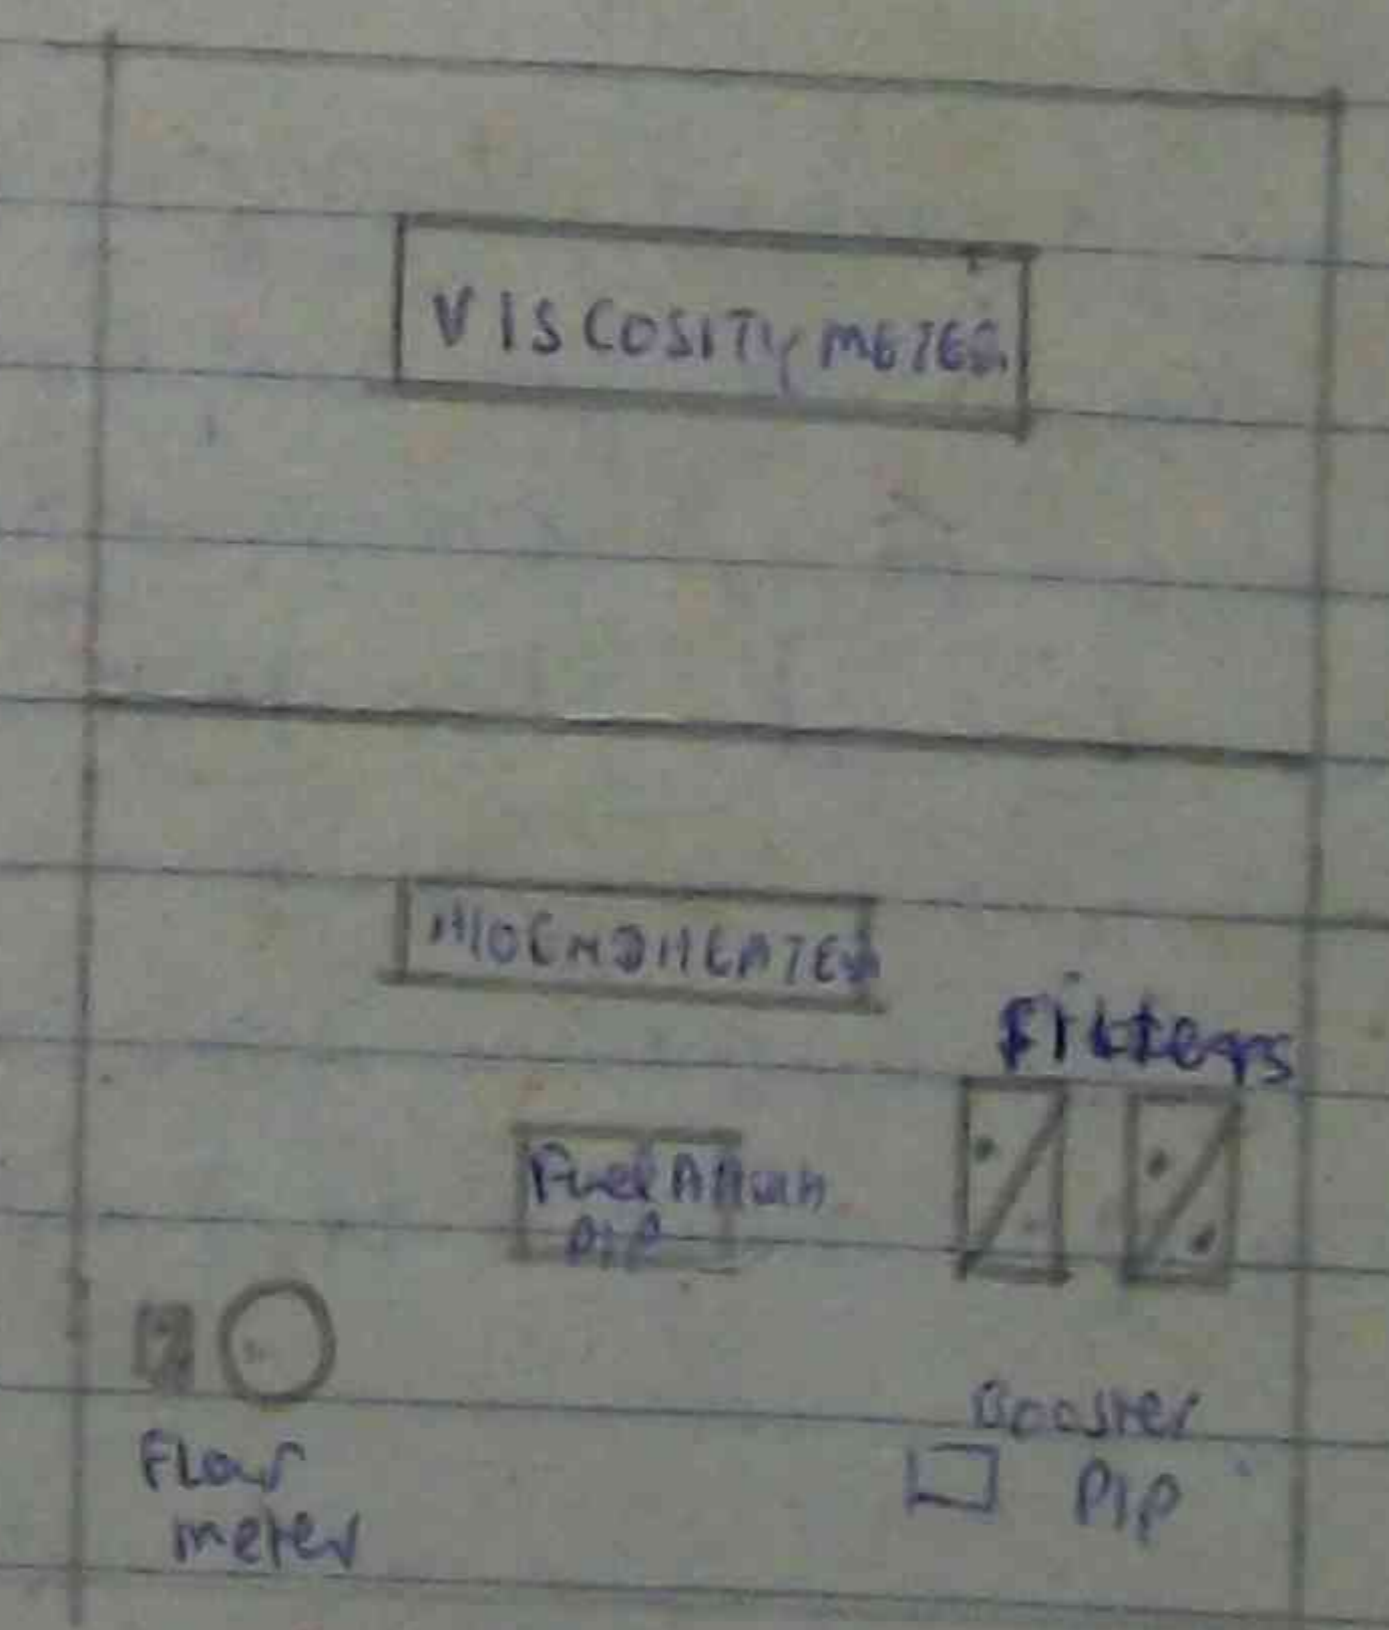 VISCOSITY METER
Filters
Fuel
P/P
Flow
meter
Booster
P/P